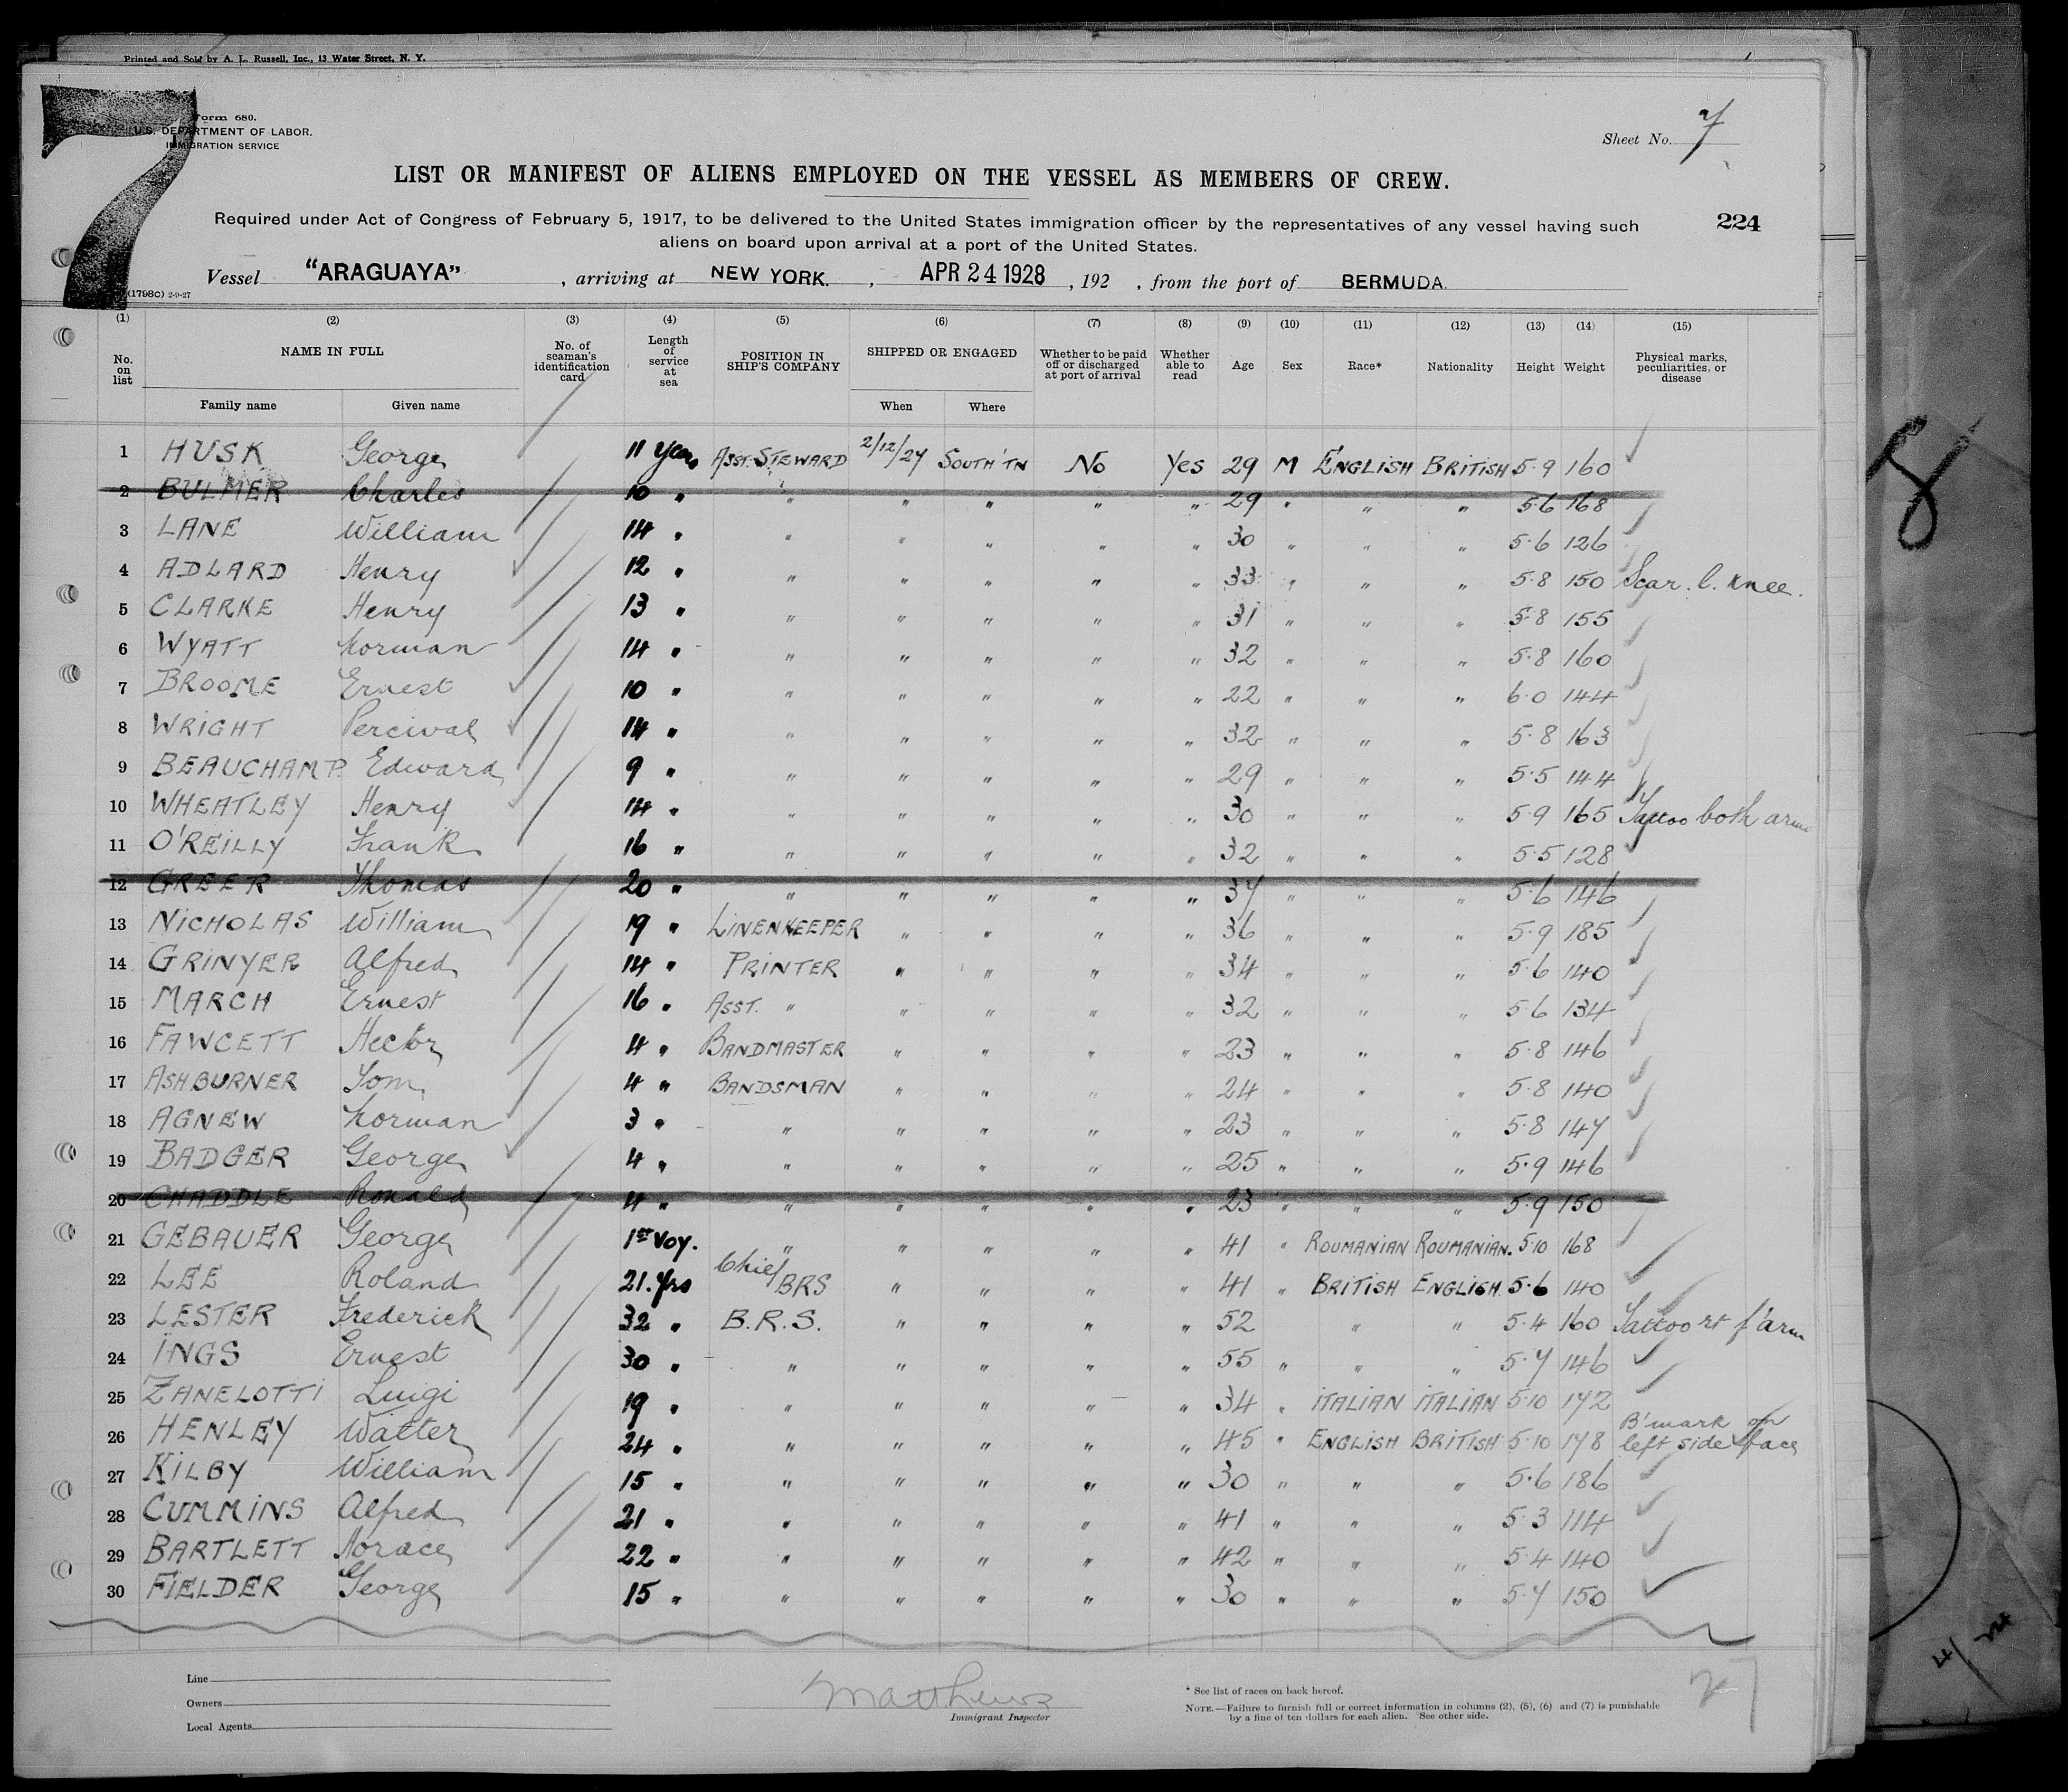 Printed and Sold by A. L. Russell, Inc., 13 Water Street, N. Y.
7
Form 680.
U.S. DEPARTMENT OF LABOR.
IMMIGRATION SERVICE
Sheet No. 7
LIST OR MANIFEST OF ALIENS EMPLOYED ON THE VESSEL AS MEMBERS OF CREW.
Required under Act of Congress of February 5, 1917, to be delivered to the United States immigration officer by the representatives of any vessel having such
aliens on board upon arrival at a port of the United States.
224
Vessel "ARAGUAYA", arriving at NEW YORK., APR 24 1928, 192 , from the port of BERMUDA.
(1798C) 2-9-27
(1) (2) (3) (4) (5) (6) (7) (8) (9) (10) (11) (12) (13) (14) (15)
No. on list NAME IN FULL No. of seaman's identification card Length of service at sea POSITION IN SHIP'S COMPANY SHIPPED OR ENGAGED Whether to be paid off or discharged at port of arrival Whether able to read Age Sex Race* Nationality Height Weight Physical marks, peculiarities, or disease
Family name Given name When Where
1 HUSK George 11 Years Asst. STEWARD 2/12/27 SOUTH'TN No Yes 29 M ENGLISH BRITISH 5·9 160
2 BULMER Charles 10 " " " " " " 29 " " " 5·6 168
3 LANE William 14 " " " " " " 30 " " " 5·6 126
4 ADLARD Henry 12 " " " " " " 33 " " " 5·8 150 Scar. l. knee.
5 CLARKE Henry 13 " " " " " " 31 " " " 5·8 155
6 WYATT Norman 14 " " " " " " 32 " " " 5·8 160
7 BROOME Ernest 10 " " " " " " 22 " " " 6·0 144
8 WRIGHT Percival 14 " " " " " " 32 " " " 5·8 163
9 BEAUCHAMP. Edward 9 " " " " " " 29 " " " 5·5 144
10 WHEATLEY Henry 14 " " " " " " 30 " " " 5·9 165 Tattoo both arms
11 O'REILLY Frank 16 " " " " " " 32 " " " 5·5 128
12 GREER Thomas 20 " " " " " " 37 " " " 5·6 146
13 NICHOLAS William 19 " LINENKEEPER " " " " 36 " " " 5·9 185
14 GRINYER Alfred 14 " PRINTER " " " " 34 " " " 5·6 140
15 MARCH Ernest 16 " ASST. " " " " " 32 " " " 5·6 134
16 FAWCETT Hector 4 " BANDMASTER " " " " 23 " " " 5·8 146
17 ASHBURNER Tom 4 " BANDSMAN " " " " 24 " " " 5·8 140
18 AGNEW Norman 3 " " " " " " 23 " " " 5·8 147
19 BADGER George 4 " " " " " " 25 " " " 5·9 146
20 CHADDLE Ronald 4 " " " " " " 23 " " " 5·9 150
21 GEBAUER George 1st Voy. " " " " " 41 " ROUMANIAN ROUMANIAN. 5·10 168
22 LEE Roland 21. Yrs Chief BRS " " " " 41 " BRITISH ENGLISH 5·6 140
23 LESTER Frederick 32 " B.R.S. " " " " 52 " " 5·4 160 Tattoo rt f'arm
24 INGS Ernest 30 " " " " " " 55 " " " 5·7 146
25 ZANELOTTI Luigi 19 " " " " " " 34 " ITALIAN ITALIAN 5·10 172
26 HENLEY Walter 24 " " " " " " 45 " ENGLISH BRITISH 5·10 178 B'mark on left side face
27 KILBY William 15 " " " " " " 30 " " " 5·6 186
28 CUMMINS Alfred 21 " " " " " " 41 " " " 5·3 114
29 BARTLETT Horace 22 " " " " " " 42 " " " 5·4 140
30 FIELDER George 15 " " " " " " 30 " " " 5·7 150
Line
Owners
Local Agents
Matthews
Immigrant Inspector
* See list of races on back hereof.
NOTE.—Failure to furnish full or correct information in columns (2), (5), (6) and (7) is punishable
by a fine of ten dollars for each alien. See other side.
27
8
4/24